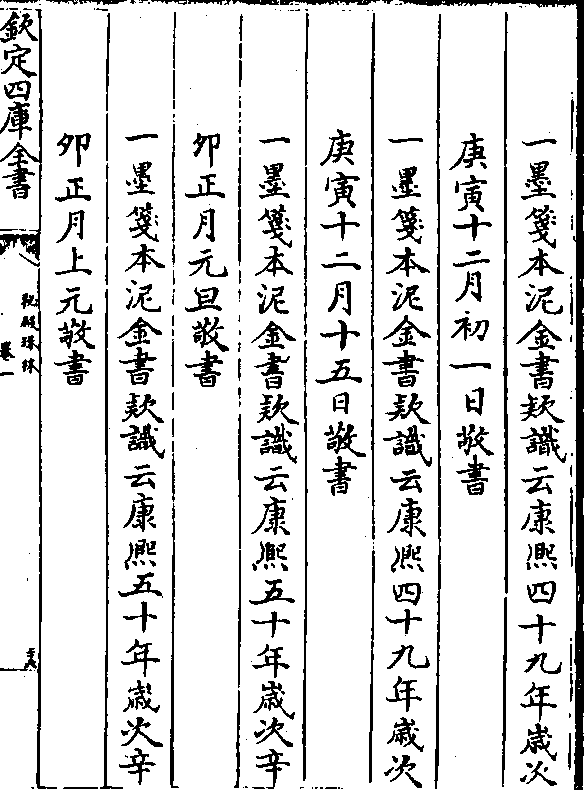 一墨箋本泥金書欵識云康熙四十九年歲次
庚寅十二月初一日敬書
一墨箋本泥金書欵識云康熙四十九年歲次
庚寅十二月十五日敬書
一墨箋本泥金書欵識云康熙五十年歲次辛
卯正月元旦敬書
一墨箋本泥金書欵識云康熙五十年歲次辛
卯正月上元敬書
欽定四庫全書
秘殿珠林
卷一